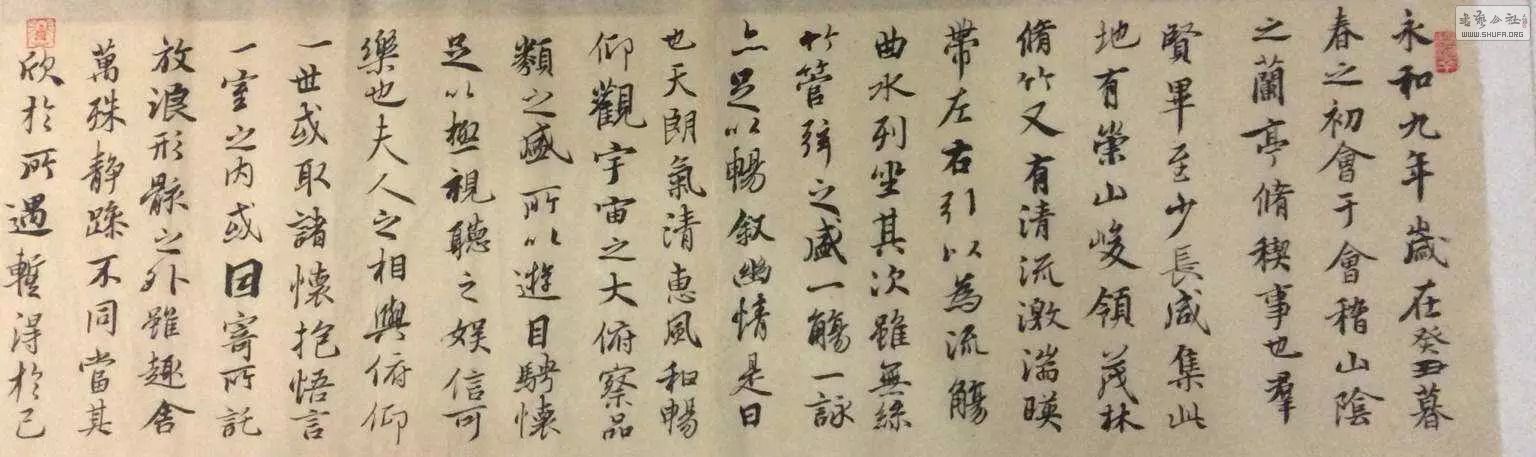 永和九年歲在癸丑暮
春之初會于會稽山陰
之蘭亭脩稧事也羣
賢畢至少長咸集此
地有崇山峻領茂林
脩竹又有清流激湍暎
帶左右引以為流觴
曲水列坐其次雖無絲
竹管弦之盛一觴一詠
亦足以暢叙幽情是日
也天朗氣清惠風和暢
仰觀宇宙之大俯察品
類之盛所以遊目騁懷
足以極視聽之娱信可
樂也夫人之相與俯仰
一世或取諸懷抱悟言
一室之內或因寄所託
放浪形骸之外雖趣舍
萬殊静躁不同當其
欣於所遇暫得於己
書藝公社
WWW.SHUFA.ORG